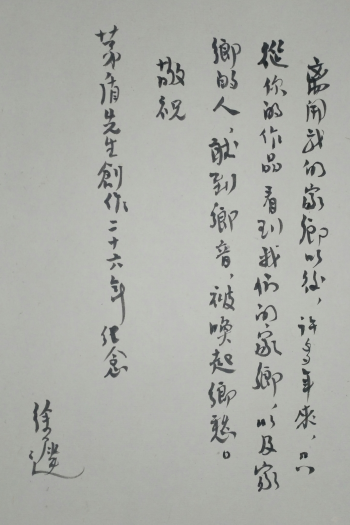 离开我的家鄉以後，许多年來，只
從你的作品看到我们的家鄉，以及家
鄉的人，聽到鄉音，被喚起鄉愁。
敬祝
茅盾先生創作二十六年纪念
徐遲